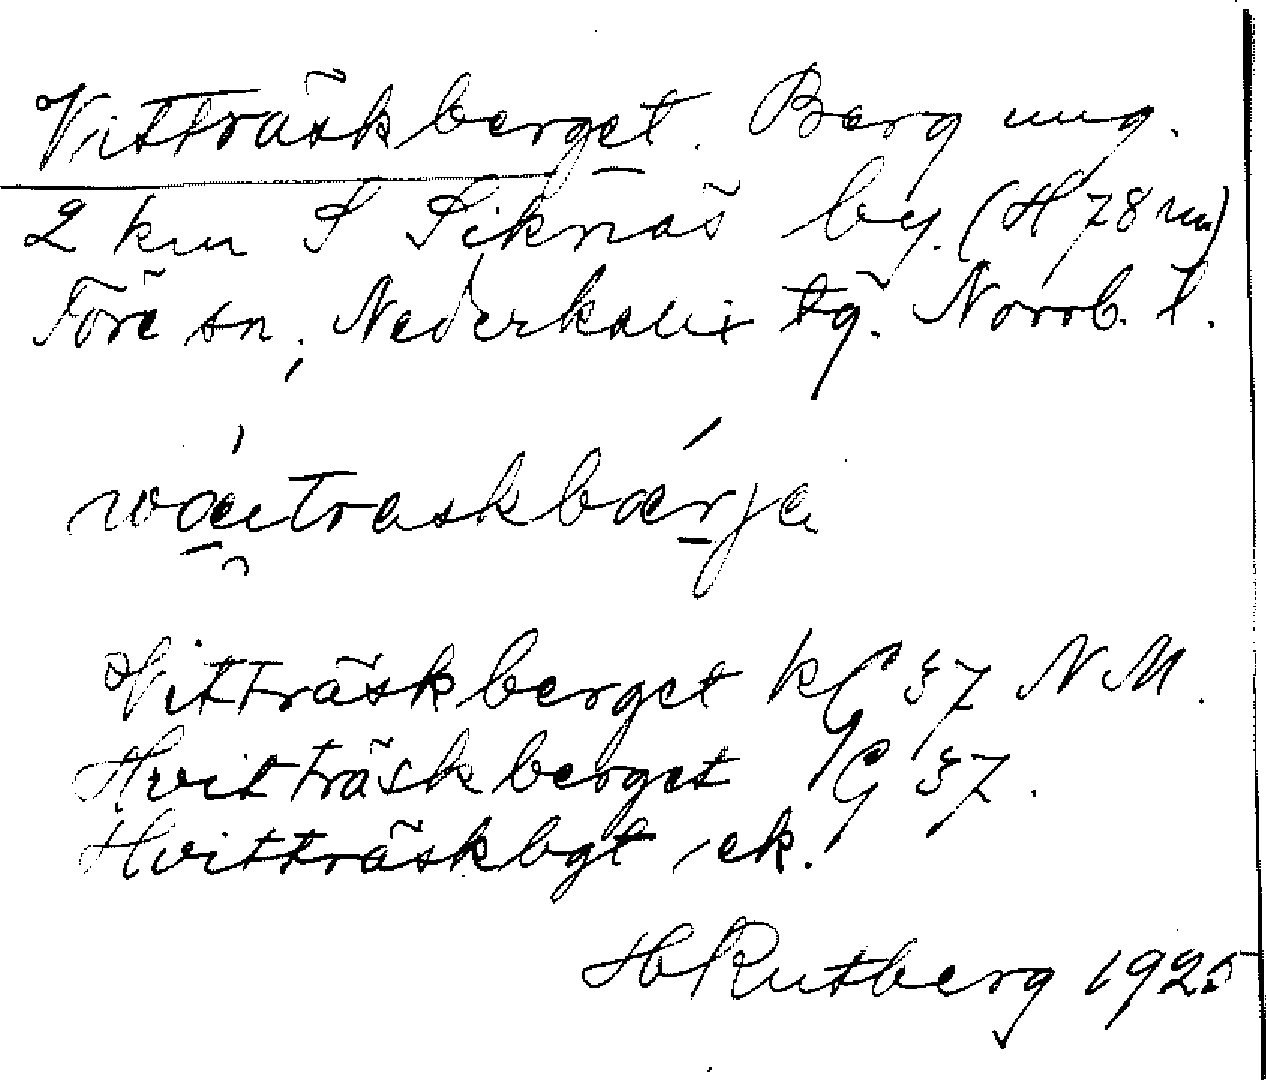 Vitträskberget. Berg ung.
2 km S Siknäs by. (H 78 m)
Töre sn, Nederkalix tg. Norrb. l.
Vitträskberget kG 57 NM.
Hvitträskberget G 57.
Hvitträskbgt ek.
H Rutberg 1925